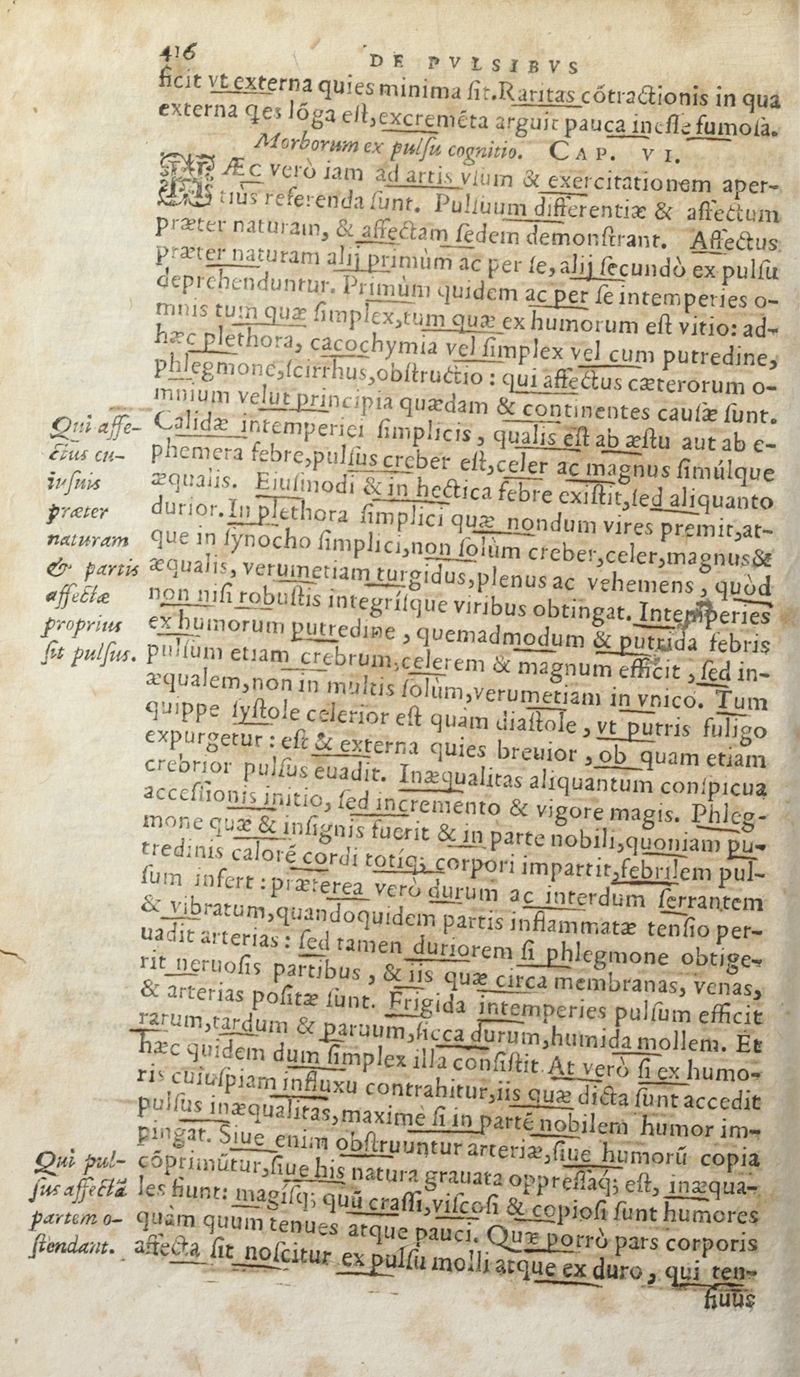 416
DE PVLSIBVS
ficit vt externa quies minima fit. Raritas cōtractionis in qua
externa qes lōga est, excremēta arguit pauca inesse fumosa.
Morborum ex pulsu cognitio. CAP. VI.
HÆc verò iam ad artis vsum & exercitationem aper-
tius referenda sunt. Pulsuum differentiæ & affectum
præter naturam, & affectam sedem demonstrant. Affectus
præter naturam alij primùm ac per se, alij secundò ex pulsu
deprehenduntur. Primùm quidem ac per se intemperies o-
mnis tum quæ simplex, tum quæ ex humorum est vitio: ad-
hæc plethora, cacochymia vel simplex vel cum putredine,
phlegmone, scirrhus, obstructio: qui affectus cæterorum o-
mnium velut principia quædam & continentes causæ sunt.
Qui affe-
ctus cu-
iusuis
præter
naturam
& partis
affectæ
proprius
sit pulsus.
Calidæ intemperiei simplicis, qualis est ab æstu aut ab e-
phemera febre, pulsus creber est, celer ac magnus simúlque
æqualis. Eiusmodi & in hectica febre existit, sed aliquanto
durior. In plethora simplici quæ nondum vires premit, at-
que in synocho simplici, non solùm creber, celer, magnus &
æqualis, verumetiam turgidus, plenus ac vehemens, quòd
non nisi robustis integrísque viribus obtingat. Intemperies
ex humorum putredine, quemadmodum & putrida febris
pulsum etiam crebrum, celerem & magnum efficit, sed in-
æqualem, non in multis solùm, verumetiam in vnico. Tum
quippe systole celerior est quam diastole, vt putris fuligo
expurgetur: est & externa quies breuior, ob quam etiam
crebrior pulsus euadit. Inæqualitas aliquantum conspicua
accessionis initio, sed incremento & vigore magis. Phleg-
mone quæ & insignis fuerit & in parte nobili, quoniam pu-
tredinis calorē cordi totiq; corpori impartit, febrilem pul-
sum infert: præterea verò durum ac interdum serrantem
& vibratum, quandoquidem partis inflammatæ tensio per-
uadit arterias: sed tamen duriorem si phlegmone obtige-
rit neruosis partibus, & iis quæ circa membranas, venas,
& arterias positæ sunt. Frigida intemperies pulsum efficit
rarum, tardum & paruum, sicca durum, humida mollem. Et
hæc quidem dum simplex illa consistit. At verò si ex humo-
ris cuiuspiam influxu contrahitur, iis quæ dicta sunt accedit
pulsus inæqualitas, maxime si in partē nobilem humor im-
pingat. Siue enim obstruuntur arteriæ, siue humorū copia
cōprimūtur, siue his natura grauata oppressaq; est, inæqua-
les fiunt: magisq; quū crassi, viscosi & copiosi sunt humores
quàm quum tenues atque pauci. Quæ porrò pars corporis
affecta sit noscitur ex pulsu molli atque ex duro, qui ten-
Qui pul-
sus affectā
partem o-
stendant.
siuus